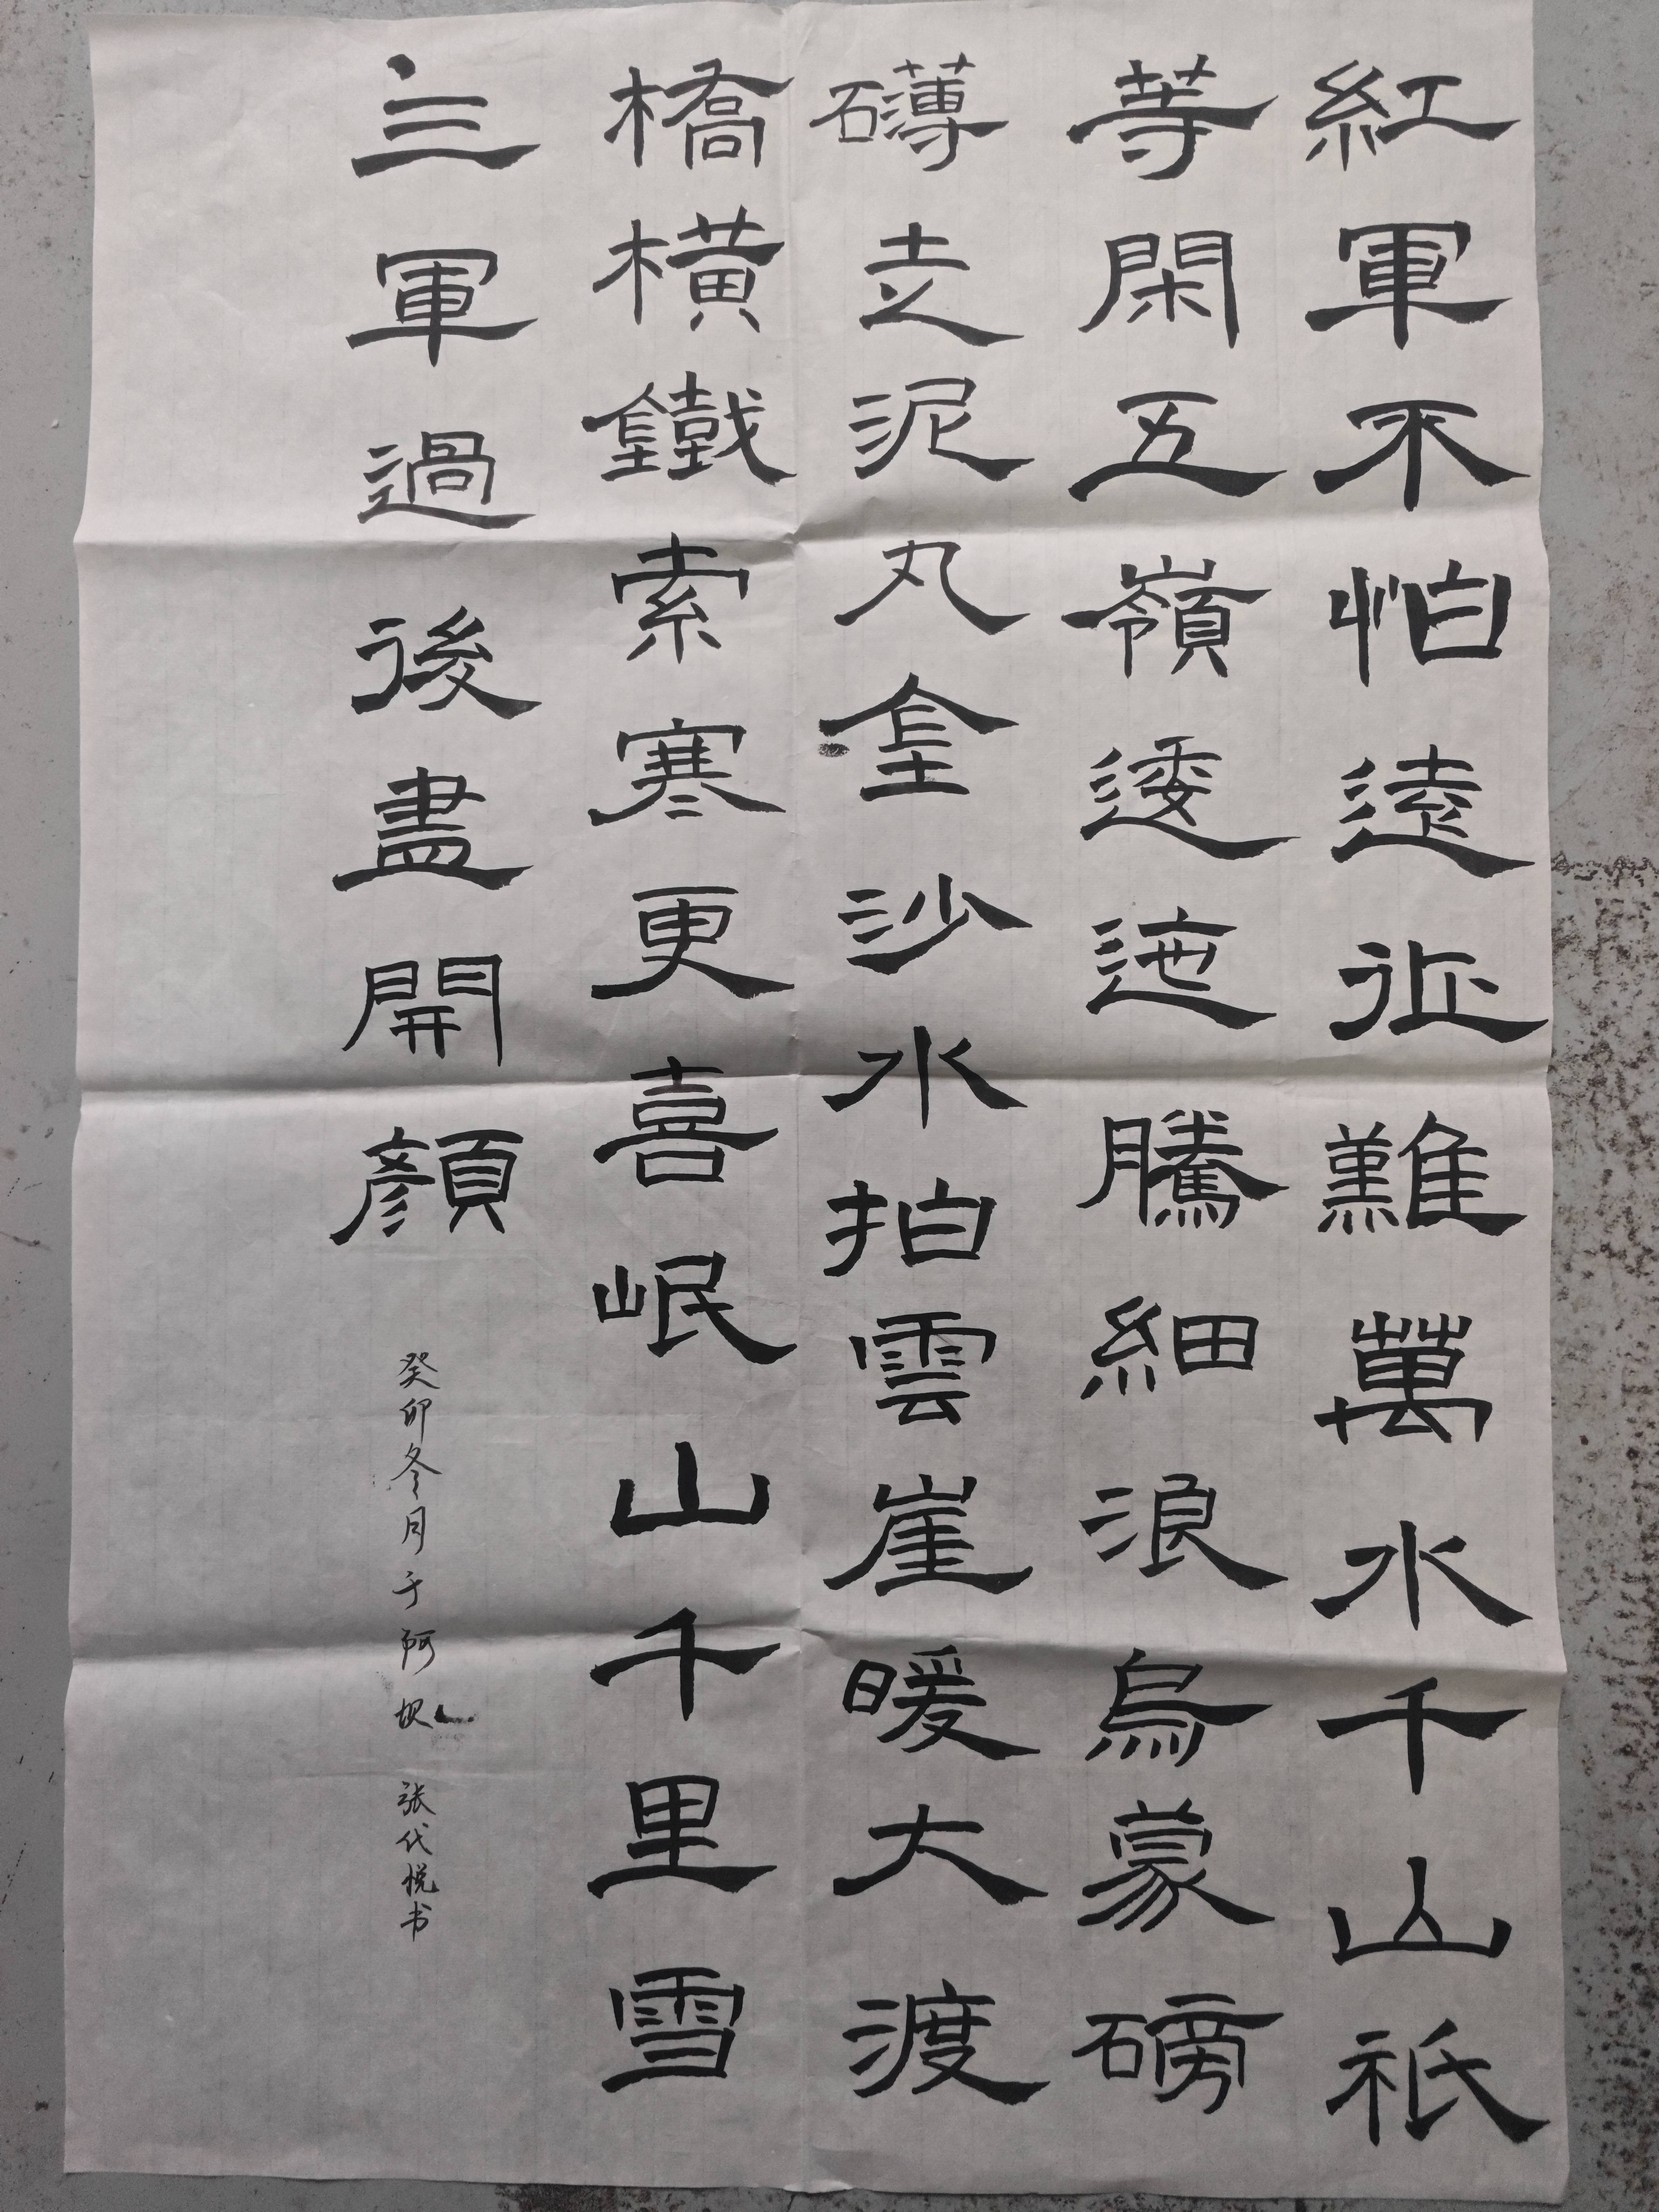 紅軍不怕遠征難萬水千山祇
等閑五嶺逶迤騰細浪烏蒙磅
礴走泥丸金沙水拍雲崖暖大渡
橋橫鐵索寒更喜岷山千里雪
三軍過後盡開顏
癸卯冬月于阿坝 张代悦书